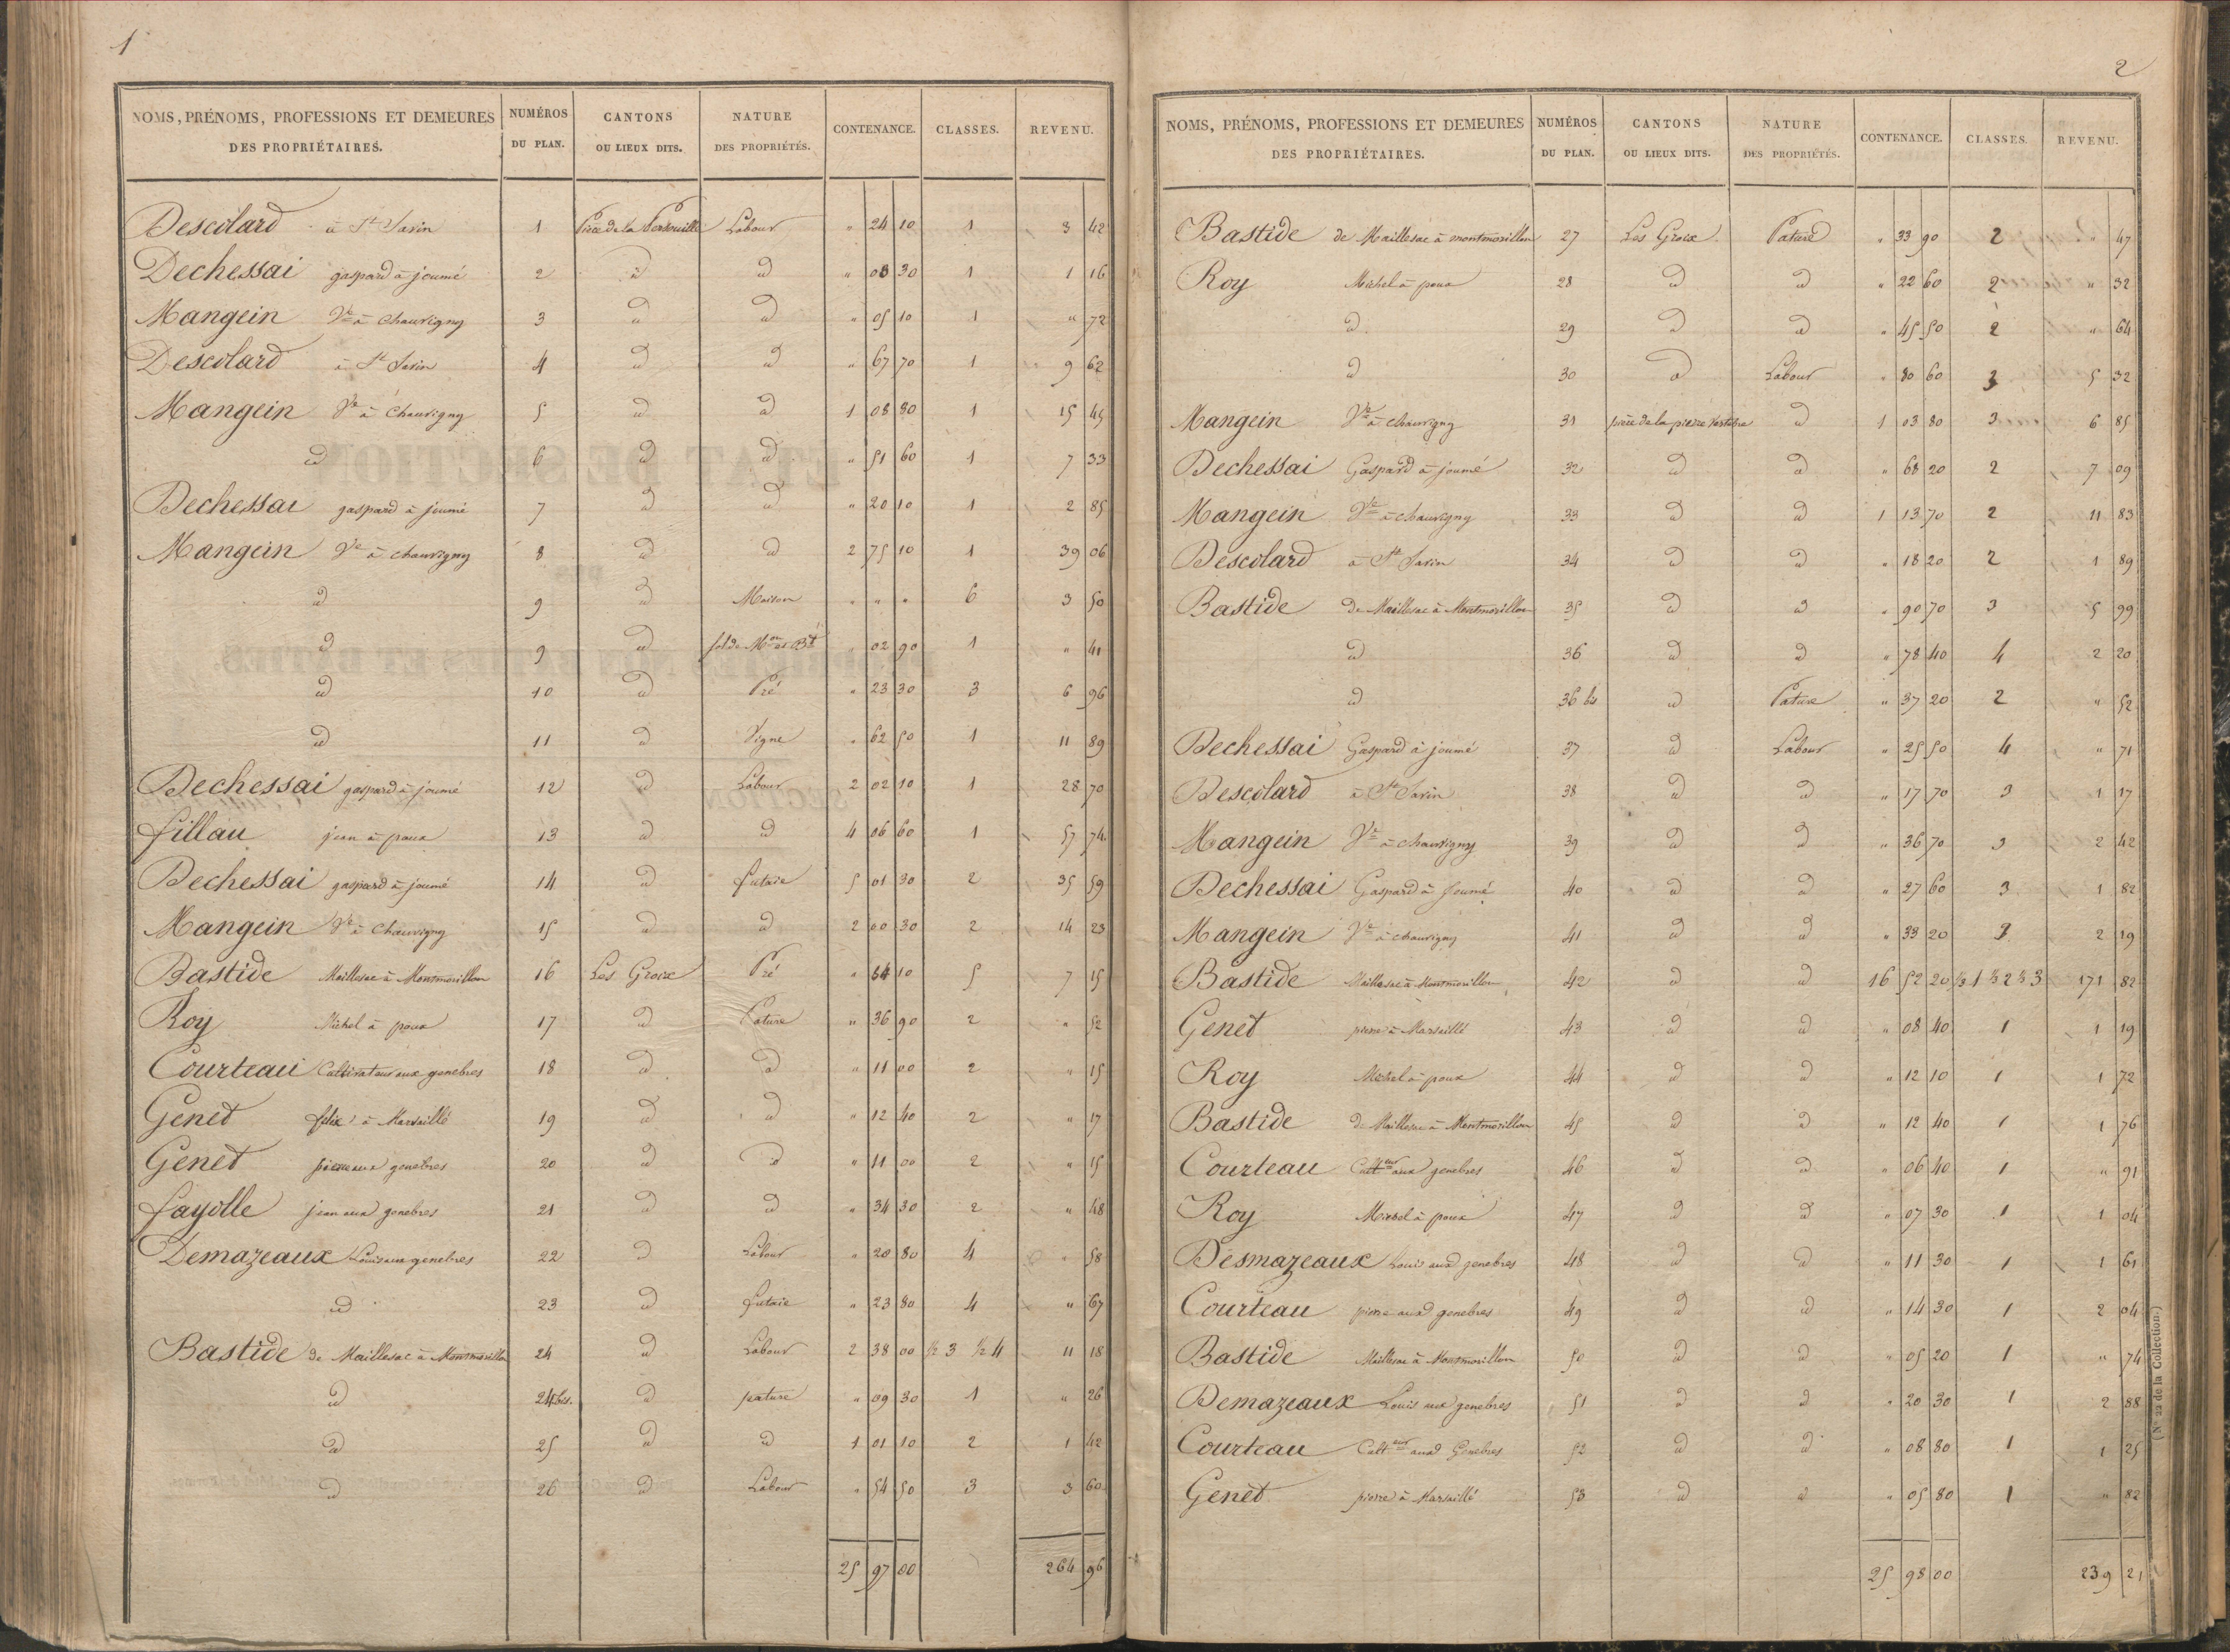 1
NOMS, PRÉNOMS, PROFESSIONS ET DEMEURES DES PROPRIÉTAIRES. NUMÉROS DU PLAN. CANTONS OU LIEUX DITS. NATURE DES PROPRIÉTÉS. CONTENANCE. CLASSES. REVENU.
Descolard à St Savin 1 Pièce de la Labour " 24 10 1 3 42
Dechessai gaspard à joumé 2 id id " 08 30 1 1 16
Mangein Ve à Chauvigny 3 id id " 05 10 1 " 72
Descolard à St Savin 4 id id " 67 70 1 9 62
Mangein Ve à Chauvigny 5 id id 1 08 80 1 15 45
id 6 id id " 51 60 1 7 33
Dechessai gaspard à joumé 7 id id " 20 10 1 2 85
Mangein Ve à chauvigny 8 id id 2 75 10 1 39 06
id 9 id Maison " " " 6 3 50
id 9 id sol de Mon et Bt " 02 90 1 " 41
id 10 id Pré " 23 30 3 6 96
id 11 id Vigne " 62 50 1 11 89
Dechessai gaspard à joumé 12 id Labour 2 02 10 1 28 70
fillau jean à poux 13 id id 4 06 60 1 57 74
Dechessai gaspard à joumé 14 id futaie 5 01 30 2 35 59
Mangein Ve à Chauvigny 15 id id 2 00 30 2 14 23
Bastide Maillesac à Montmorillon 16 Les Groix Pré " 64 10 5 7 15
Roy Michel à poux 17 id Pature " 36 90 2 " 52
Courteau Cultivateur aux genebres 18 id id " 11 00 2 " 15
Genet felix à Marsaillé 19 id id " 12 40 2 " 17
Genet pierre aux genebres 20 id id " 11 00 2 " 15
fayolle jean aux genebres 21 id id " 34 30 2 " 48
Demazeaux Louis aux genebres 22 id Labour " 20 80 4 " 58
id 23 id futaie " 23 80 4 " 67
Bastide de Maillesac à Montmorillon 24 id Labour 2 38 00 ½ 3 ½ 4 11 18
id 24 bis. id pature " 09 30 1 " 26
id 25 id id 1 01 10 2 1 42
id 26 id Labour " 54 50 3 3 60
25 97 00 264 96
2
NOMS, PRÉNOMS, PROFESSIONS ET DEMEURES DES PROPRIÉTAIRES. NUMÉROS DU PLAN. CANTONS OU LIEUX DITS. NATURE DES PROPRIÉTÉS. CONTENANCE. CLASSES. REVENU.
Bastide de Maillesac à montmorillon 27 Les Groix Pature " 33 90 2 " 47
Roy Michel à poux 28 id id " 22 60 2 " 32
id 29 id id " 45 50 2 " 64
id 30 id Labour " 80 60 3 5 32
Mangein Ve à chauvigny 31 pièce de la pierre id 1 03 80 3 6 85
Dechessai Gaspard à joumé 32 id id " 68 20 2 7 09
Mangein Ve à chauvigny 33 id id 1 13 70 2 11 83
Descolard à St Savin 34 id id " 18 20 2 1 89
Bastide de Maillesac à Montmorillon 35 id id " 90 70 3 5 99
id 36 id id " 78 40 4 2 20
id 36 bis id Pature " 37 20 2 " 52
Dechessai Gaspard à joumé 37 id Labour " 25 50 4 " 71
Descolard à St Savin 38 id id " 17 70 3 1 17
Mangein Ve à chauvigny 39 id id " 36 70 3 2 42
Dechessai Gaspard à Joumé 40 id id " 27 60 3 1 82
Mangein Ve à chauvigny 41 id id " 33 20 3 2 19
Bastide Maillesac à Montmorillon 42 id id 16 52 20 ⅓ 1 ⅓ 2 ⅓ 3 171 82
Genet pierre à Marsaillé 43 id id " 08 40 1 1 19
Roy Michel à poux 44 id id " 12 10 1 1 72
Bastide de Maillesac à Montmorillon 45 id id " 12 40 1 1 76
Courteau Culteur aux genebres 46 id id " 06 40 1 " 91
Roy Michel à poux 47 id id " 07 30 1 1 04
Desmazeaux Louis aux genebres 48 id id " 11 30 1 1 61
Courteau pierre aux genebres 49 id id " 14 30 1 2 04
Bastide Maillesac à Montmorillon 50 id id " 05 20 1 " 74
Demazeaux Louis aux genebres 51 id id " 20 30 1 2 88
Courteau Culteur aux Genebres 52 id id " 08 80 1 1 25
Genet pierre à Marsaillé 53 id id " 05 80 1 " 82
25 98 00 239 21
(N° 22 de la Collection.)